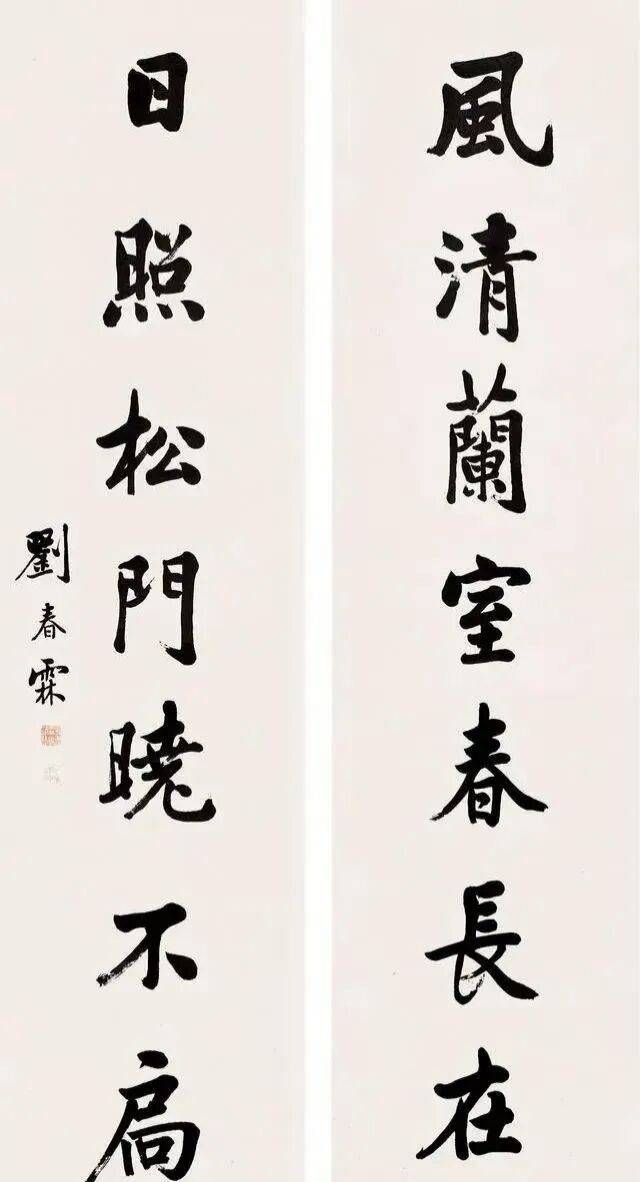 風清蘭室春長在
日照松門曉不扃
劉春霖